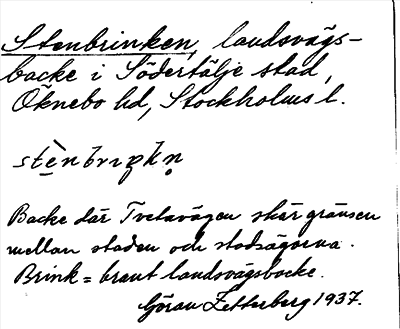 Stenbrinken, landsvägs-
backe i Södertälje stad,
Öknebo hd, Stockholms l.
stè̱nbriŋkn̥
Backe där Tvetavägen skär gränsen
mellan staden och stadsägorna.
Brink = brant landsvägsbacke.
Göran Zetterberg 1937.